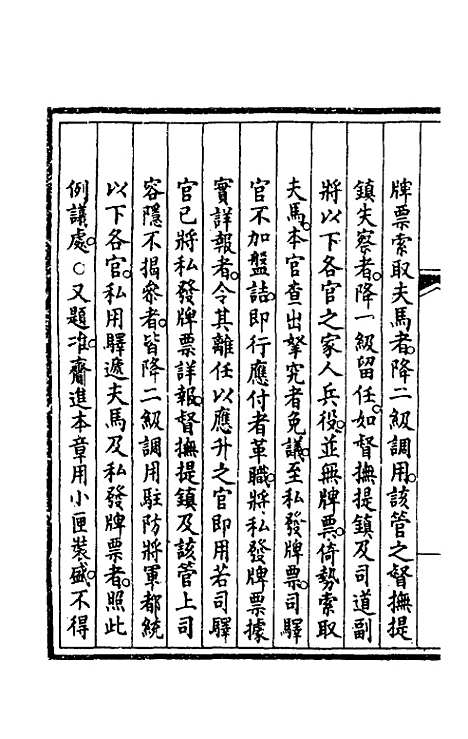 牌票索取夫馬者降二級調用該管之督撫提
鎮失察者降一級留任如督撫提鎮及司道副
將以下各官之家人兵役並無牌票倚勢索取
夫馬本官查出拏究者免議至私發牌票司驛
官不加盤詰即行應付者革職將私發牌票據
實詳報者令其離任以應升之官即用若司驛
官已將私發牌票詳報督撫提鎮及該管上司
容隱不揭參者皆降二級調用駐防將軍都統
以下各官私用驛遞夫馬及私發牌票者照此
例議處○又題准齎進本章用小匣裝盛不得